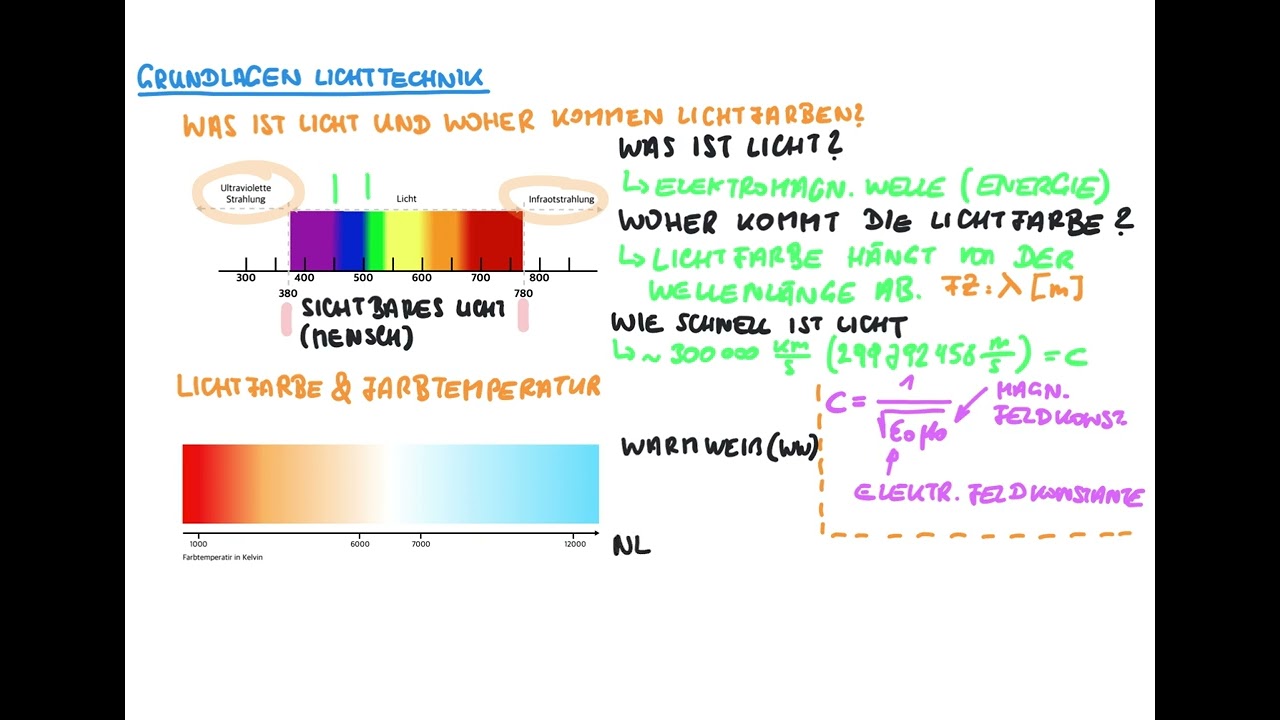 GRUNDLAGEN LICHTTECHNIK
WAS IST LICHT UND WOHER KOMMEN LICHTFARBEN?
Ultraviolette
Strahlung
Licht
Infraotstrahlung
300 400 500 600 700 800
380 780
SICHTBARES LICHT
(MENSCH)
WAS IST LICHT?
↳ ELEKTROMAGN. WELLE (ENERGIE)
WOHER KOMMT DIE LICHTFARBE?
↳ LICHTFARBE HÄNGT VON DER
WELLENLÄNGE AB. FZ: λ [m]
WIE SCHNELL IST LICHT
↳ ~ 300 000 km/s (299 792 458 m/s) = C
C = 1/√ε₀μ₀
MAGN.
FELDKONST
ELEKTR. FELDKONSTANTE
LICHTFARBE & FARBTEMPERATUR
1000 6000 7000 12000
Farbtemperatir in Kelvin
WARMWEIß (WW)
NL